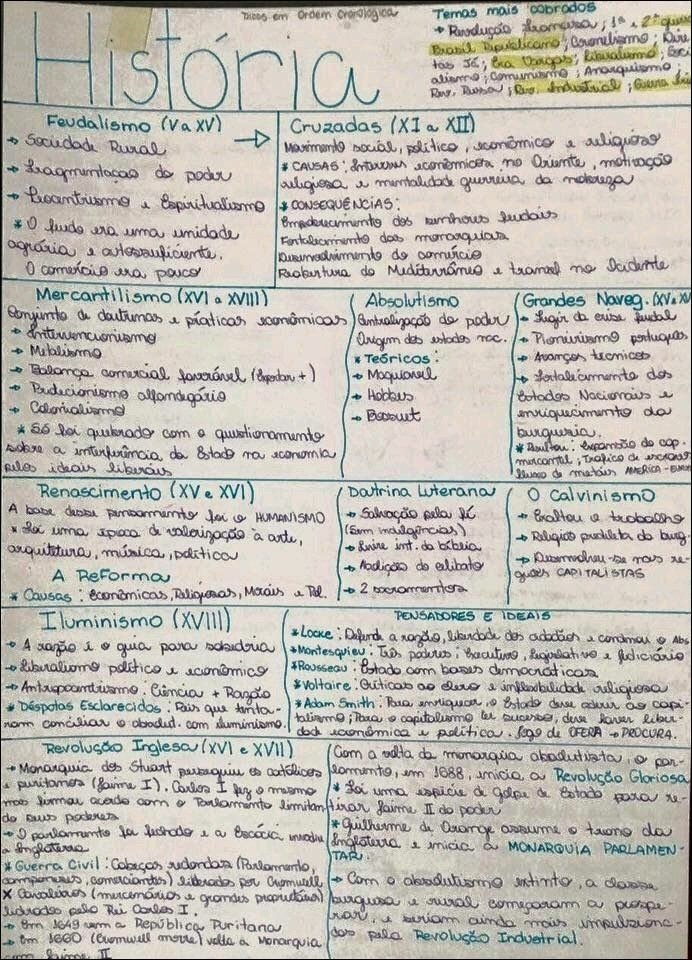 Todos em Ordem Cronológica
História
Temas mais cobrados
→ Revolução Francesa; 1ª e 2ª
Brasil Republicano; Coronelismo; Dire
tas Já; Era Vargas; Liberalismo; Soci
alismo; Comunismo; Anarquismo;
Rev. Russa; Rev. Industrial; Guerra
Feudalismo (V a XV)
→ Sociedade Rural
→ Fragmentação do poder
→ Teocentrismo e Espiritualismo
* O feudo era uma unidade
agrária e autossuficiente.
O comércio era pouco
Cruzadas (XI a XII)
Movimento social, político, econômico e religioso
* CAUSAS: Interesses econômicos no Oriente, motivação
religiosa e mentalidade guerreira da nobreza
* CONSEQUÊNCIAS:
Empobrecimento dos senhores feudais
Fortalecimento das monarquias
Desenvolvimento do comércio
Reabertura do Mediterrâneo e transf no Ocidente
Mercantilismo (XVI a XVIII)
Conjunto de doutrinas e práticas econômicas
→ Intervencionismo
→ Metalismo
→ Balança comercial favorável (Exportar +)
→ Protecionismo alfandegário
→ Colonialismo
* Só foi quebrado com o questionamento
sobre a interferência do Estado na economia
pelos ideais liberais
Absolutismo
Centralização do poder
Origem dos estados nac.
* Teóricos:
→ Maquiavel
→ Hobbes
→ Bossuet
Grandes Naveg. (XV a XV
→ Fugir da crise feudal
→ Pioneirismo português
→ Avanços tecnicos
→ Fortalecimento dos
Estados Nacionais e
enriquecimento da
burguesia.
* Resultou: Expansão do cap.
mercantil, Tráfico de escravos
fluxo de metais AMERICA - EUROPA
Renascimento (XV e XVI)
A base desse pensamento foi o HUMANISMO
* Foi uma época de valorização à arte,
arquitetura, música, política
A Reforma
* Causas: Econômicas, Religiosas, Morais e Pol.
Doutrina Luterana
→ Salvação pela fé
(Sem indulgências)
→ Livre int. da bíblia
→ Abolição do celibato
→ 2 sacramentos
O Calvinismo
→ Exaltou o trabalho
→ Religião predileta da burg.
→ Desenvolveu-se nas re
giões CAPITALISTAS
Iluminismo (XVIII)
→ A razão é o guia para sabedoria
→ Liberalismo político e econômico
→ Antropocentrismo: Ciência + Razão
* Déspotas Esclarecidos: Reis que tenta-
ram conciliar o absolut. com iluminismo.
PENSADORES E IDEAIS
* Locke: Defende a razão, liberdade dos cidadãos e condenou o Abs
* Montesquieu: Três poderes: Executivo, Legislativo e Judiciário
* Rousseau: Estado com bases democráticas
* Voltaire: Críticas ao clero e inflexibilidade religiosa
* Adam Smith: Para enriquecer, o Estado deve aderir ao capi-
talismo; Para o capitalismo ter sucesso, deve haver liber-
dade econômica e política. Jogo de OFERA → PROCURA.
Revolução Inglesa (XVI e XVII)
→ Monarquia dos Stuart perseguiu os católicos
e puritanos (Jaime I). Carlos I fez o mesmo
mas firmou acordo com o Parlamento limitan
do seus poderes
→ O parlamento foi fechado e a Escócia invadiu
a Inglaterra
* Guerra Civil: Cabeças redondas (Parlamento,
camponeses, comerciantes) liderados por Cromwell
X Cavaleiros (mercenários e grandes proprietários)
liderados pelo Rei Carlos I.
→ Em 1649 vem a República Puritana
→ Em 1660 (Cromwell morre) volta a Monarquia
com Jaime II
Com a volta da monarquia absolutista, o par-
lamento, em 1688, inicia a Revolução Gloriosa
* Foi uma espécie de golpe de Estado para re-
tirar Jaime II do poder
* Guilherme de Orange assume o trono da
Inglaterra e inicia a MONARQUIA PARLAMEN-
TAR.
→ Com o absolutismo extinto, a classe
burguesa e rural começaram a prospe-
rar, e seriam ainda mais impulsiona-
dos pela Revolução Industrial.